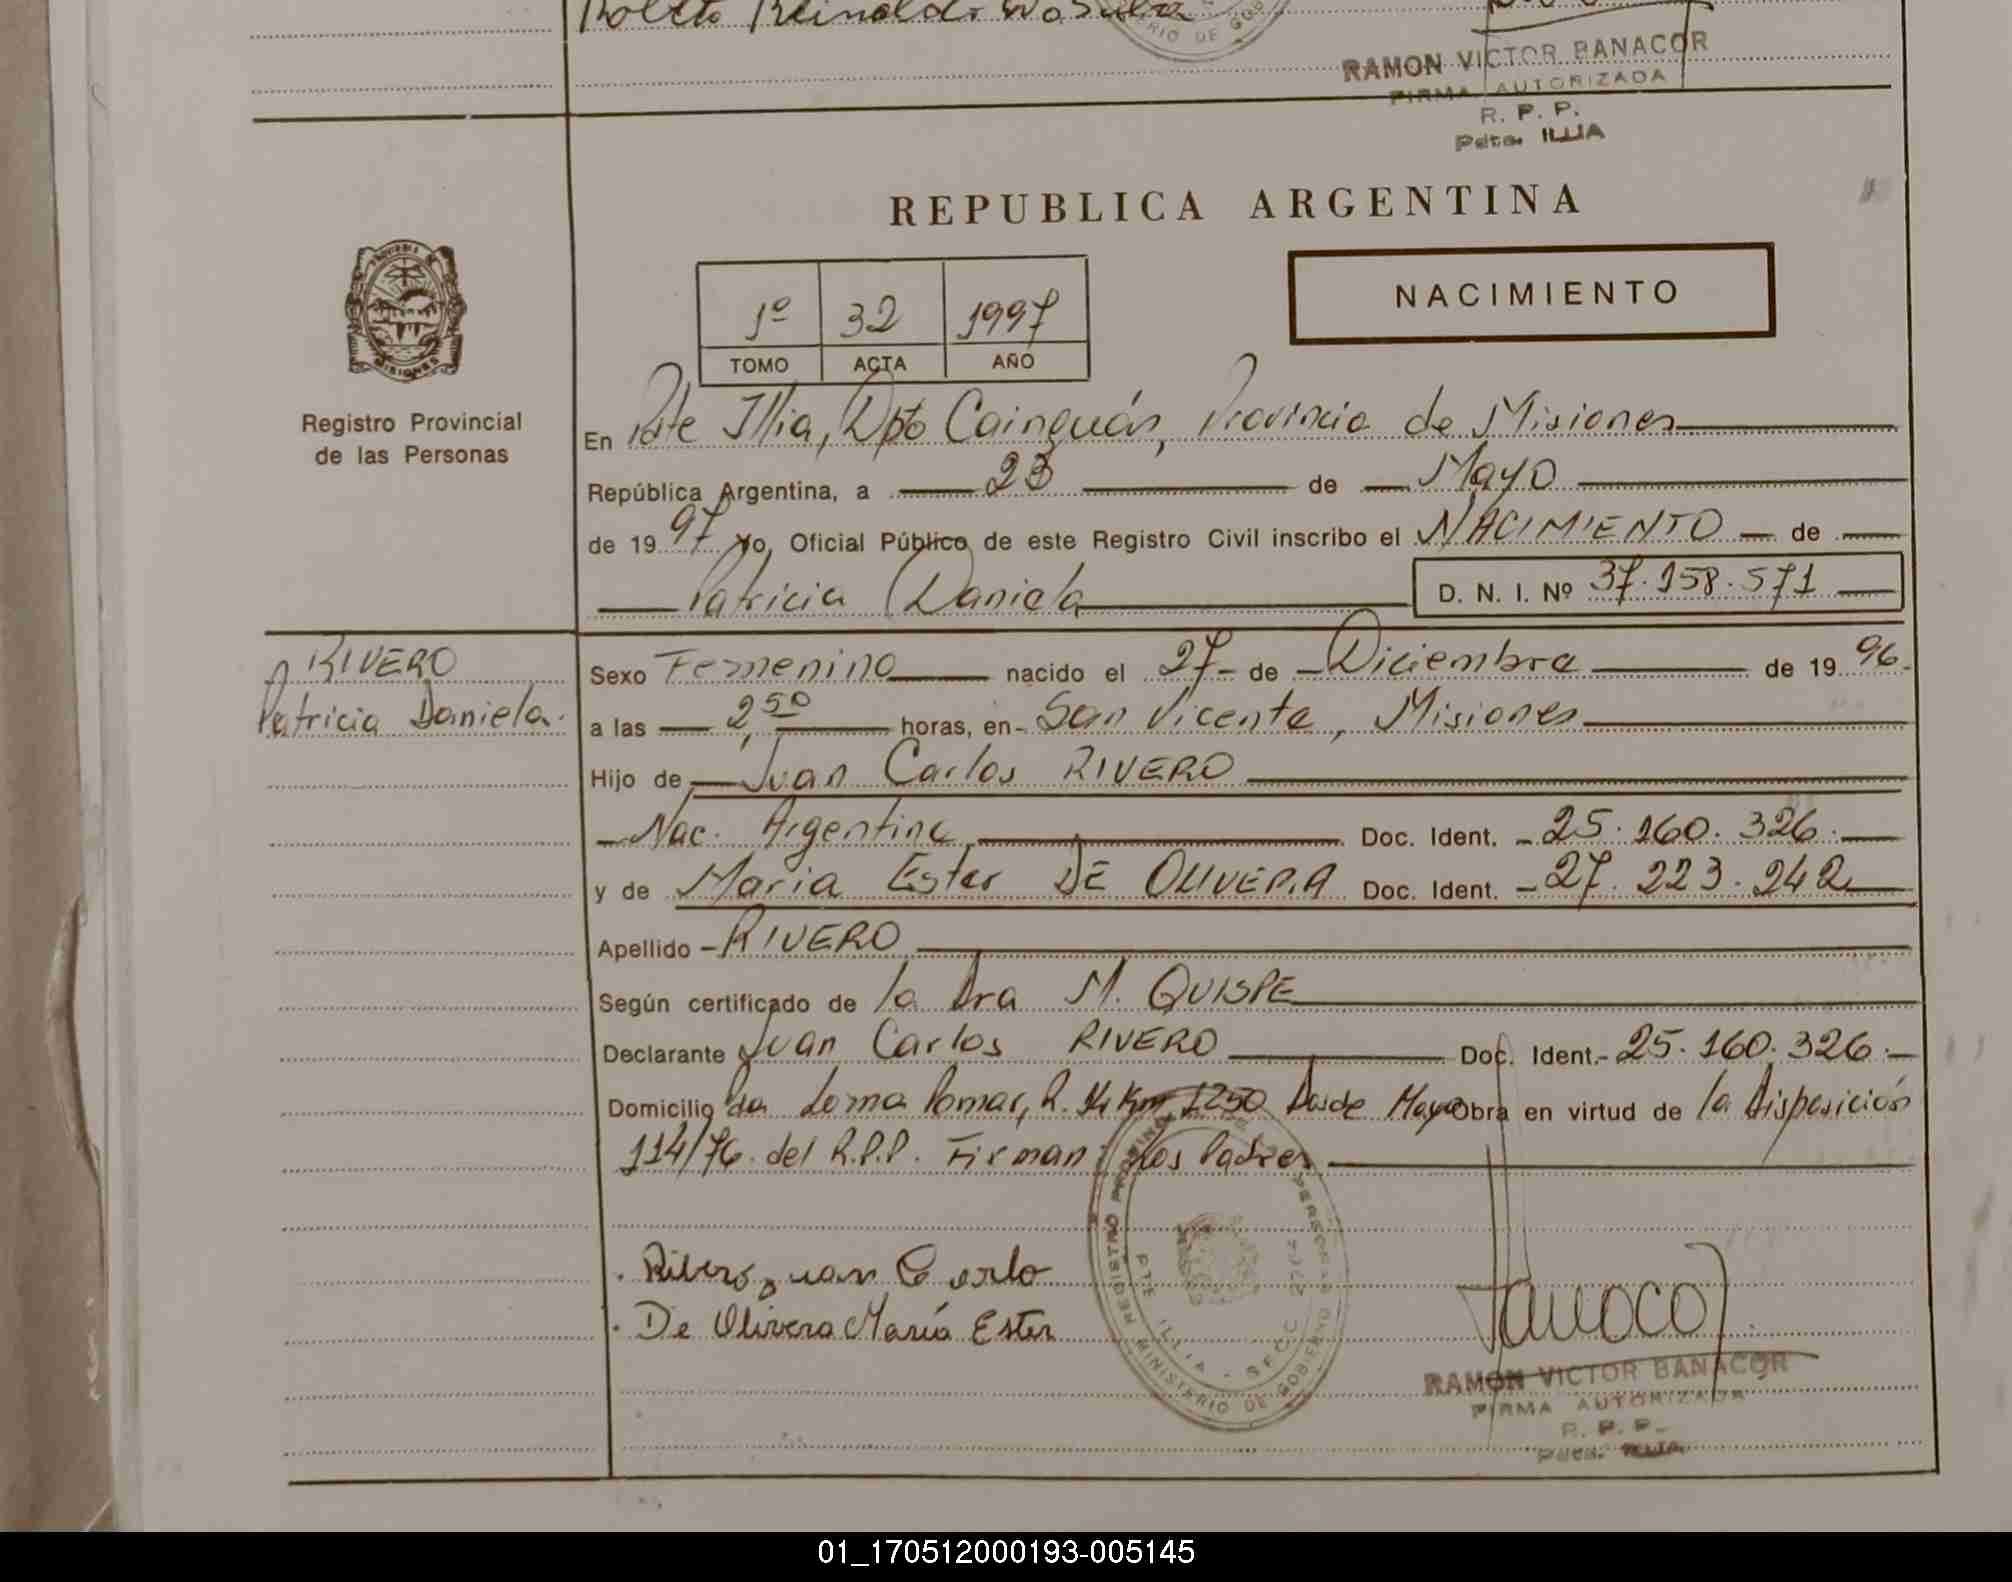 RIO DE GOB
RAMON VICTOR BANACOR
FIRMA AUTORIZADA
R. P. P.
Pdte. ILLIA
REPUBLICA ARGENTINA
1º 32 1997
TOMO ACTA AÑO
NACIMIENTO
MISIONES
Registro Provincial
de las Personas
En Pdte Illia, Dpto Cainguás, Provincia de Misiones
República Argentina, a 23 de Mayo
de 1997 Yo, Oficial Público de este Registro Civil inscribo el NACIMIENTO de
Patricia Daniela D. N. I. Nº 37.158.571
RIVERO
Patricia Daniela.
Sexo Femenino nacido el 27 de Diciembre de 1996.
a las 2,50 horas, en San Vicente, Misiones
Hijo de Juan Carlos RIVERO
Nac. Argentina Doc. Ident. 25.160.326.
y de Maria Ester DE OLIVERA Doc. Ident. 27.223.242
Apellido RIVERO
Según certificado de la Dra M. QUISPE
Declarante Juan Carlos RIVERO Doc. Ident. 25.160.326.
Domicilio Loma Pomar, R. 14 Km 1250 Desde Mayo Obra en virtud de la Disposición
114/76. del R.P.P. Firman Los Padres
REGISTRO PROVINCIAL DE LAS PERSONAS
PTE ILLIA - SECC
MINISTERIO DE GOBIERNO
Rivero Juan Carlo
De Olivera María Ester
RAMON VICTOR BANACOR
FIRMA AUTORIZADA
R. P. P.
Pdte. ILLIA
01_170512000193-005145